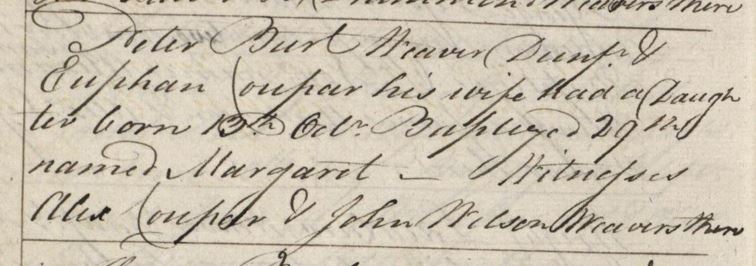 Weavers there
Peter Burt Weaver Dunf:n &
Euphan Coupar his wife had a Daugh
ter born 15th Octr. Baptized 29th
named Margaret — Witnesses
Alex Coupar & John Wilson Weavers there